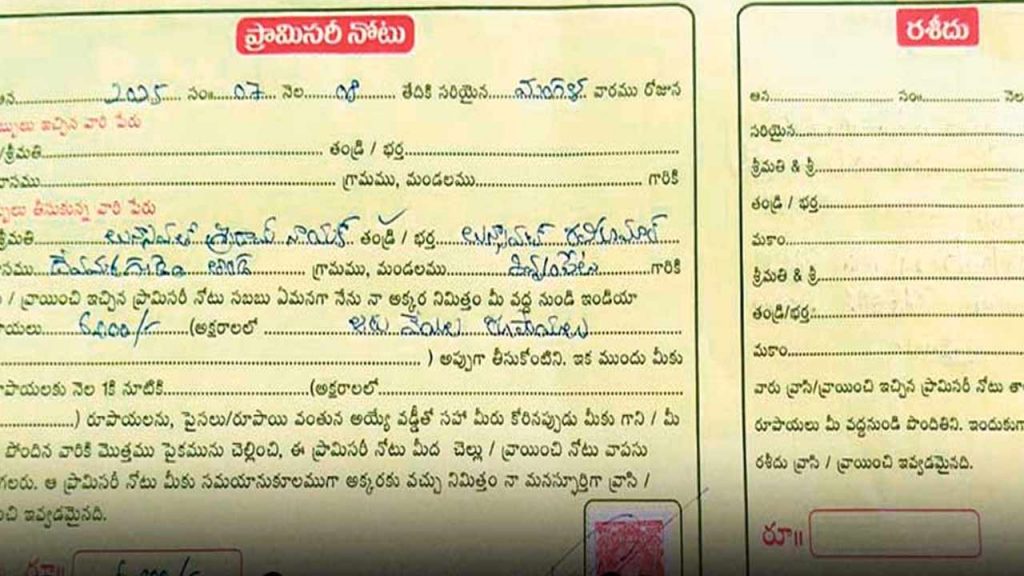 ప్రామిసరీ నోటు
ఆన 2025 సం॥ 07 నెల 08 తేదికి సరియైన మంగళ వారము రోజున
ఇచ్చిన వారి పేరు
/శ్రీమతి తండ్రి / భర్త
గ్రామము, మండలము గారికి
తీసుకున్న వారి పేరు
శ్రీరామ్ నాయక్ తండ్రి / భర్త
తండ గ్రామము, మండలము గారికి
/ వ్రాయించి ఇచ్చిన ప్రామిసరీ నోటు సబబు ఏమనగా నేను నా అక్కర నిమిత్తం మీ వద్ద నుండి ఇండియా
6000/- (అక్షరాలలో ఆరు వేలు రూపాయలు
) అప్పుగా తీసుకోంటిని. ఇక ముందు మీకు
నెల 1కి నూటికి (అక్షరాలలో
) రూపాయలను, పైసలు/రూపాయి వంతున అయ్యే వడ్డీతో సహా మీరు కోరినప్పుడు మీకు గాని / మీ
పొందిన వారికి మొత్తము పైకమును చెల్లించి, ఈ ప్రామిసరీ నోటు మీద చెల్లు / వ్రాయించి నోటు వాపసు
గలరు. ఆ ప్రామిసరీ నోటు మీకు సమయానుకూలముగా అక్కరకు వచ్చు నిమిత్తం నా మనస్ఫూర్తిగా వ్రాసి /
ఇవ్వడమైనది.
రూ॥ 6000/-
రశీదు
ఆన సం॥ నెల
సరియైన
శ్రీమతి & శ్రీ
తండ్రి / భర్త
మకాం
శ్రీమతి & శ్రీ
తండ్రి/భర్త
మకాం
వారు వ్రాసి/వ్రాయించి ఇచ్చిన ప్రామిసరీ నోటు
రూపాయలు మీ వద్దనుండి పొందితిని. ఇందుకు
రశీదు వ్రాసి / వ్రాయించి ఇవ్వడమైనది.
రూ॥